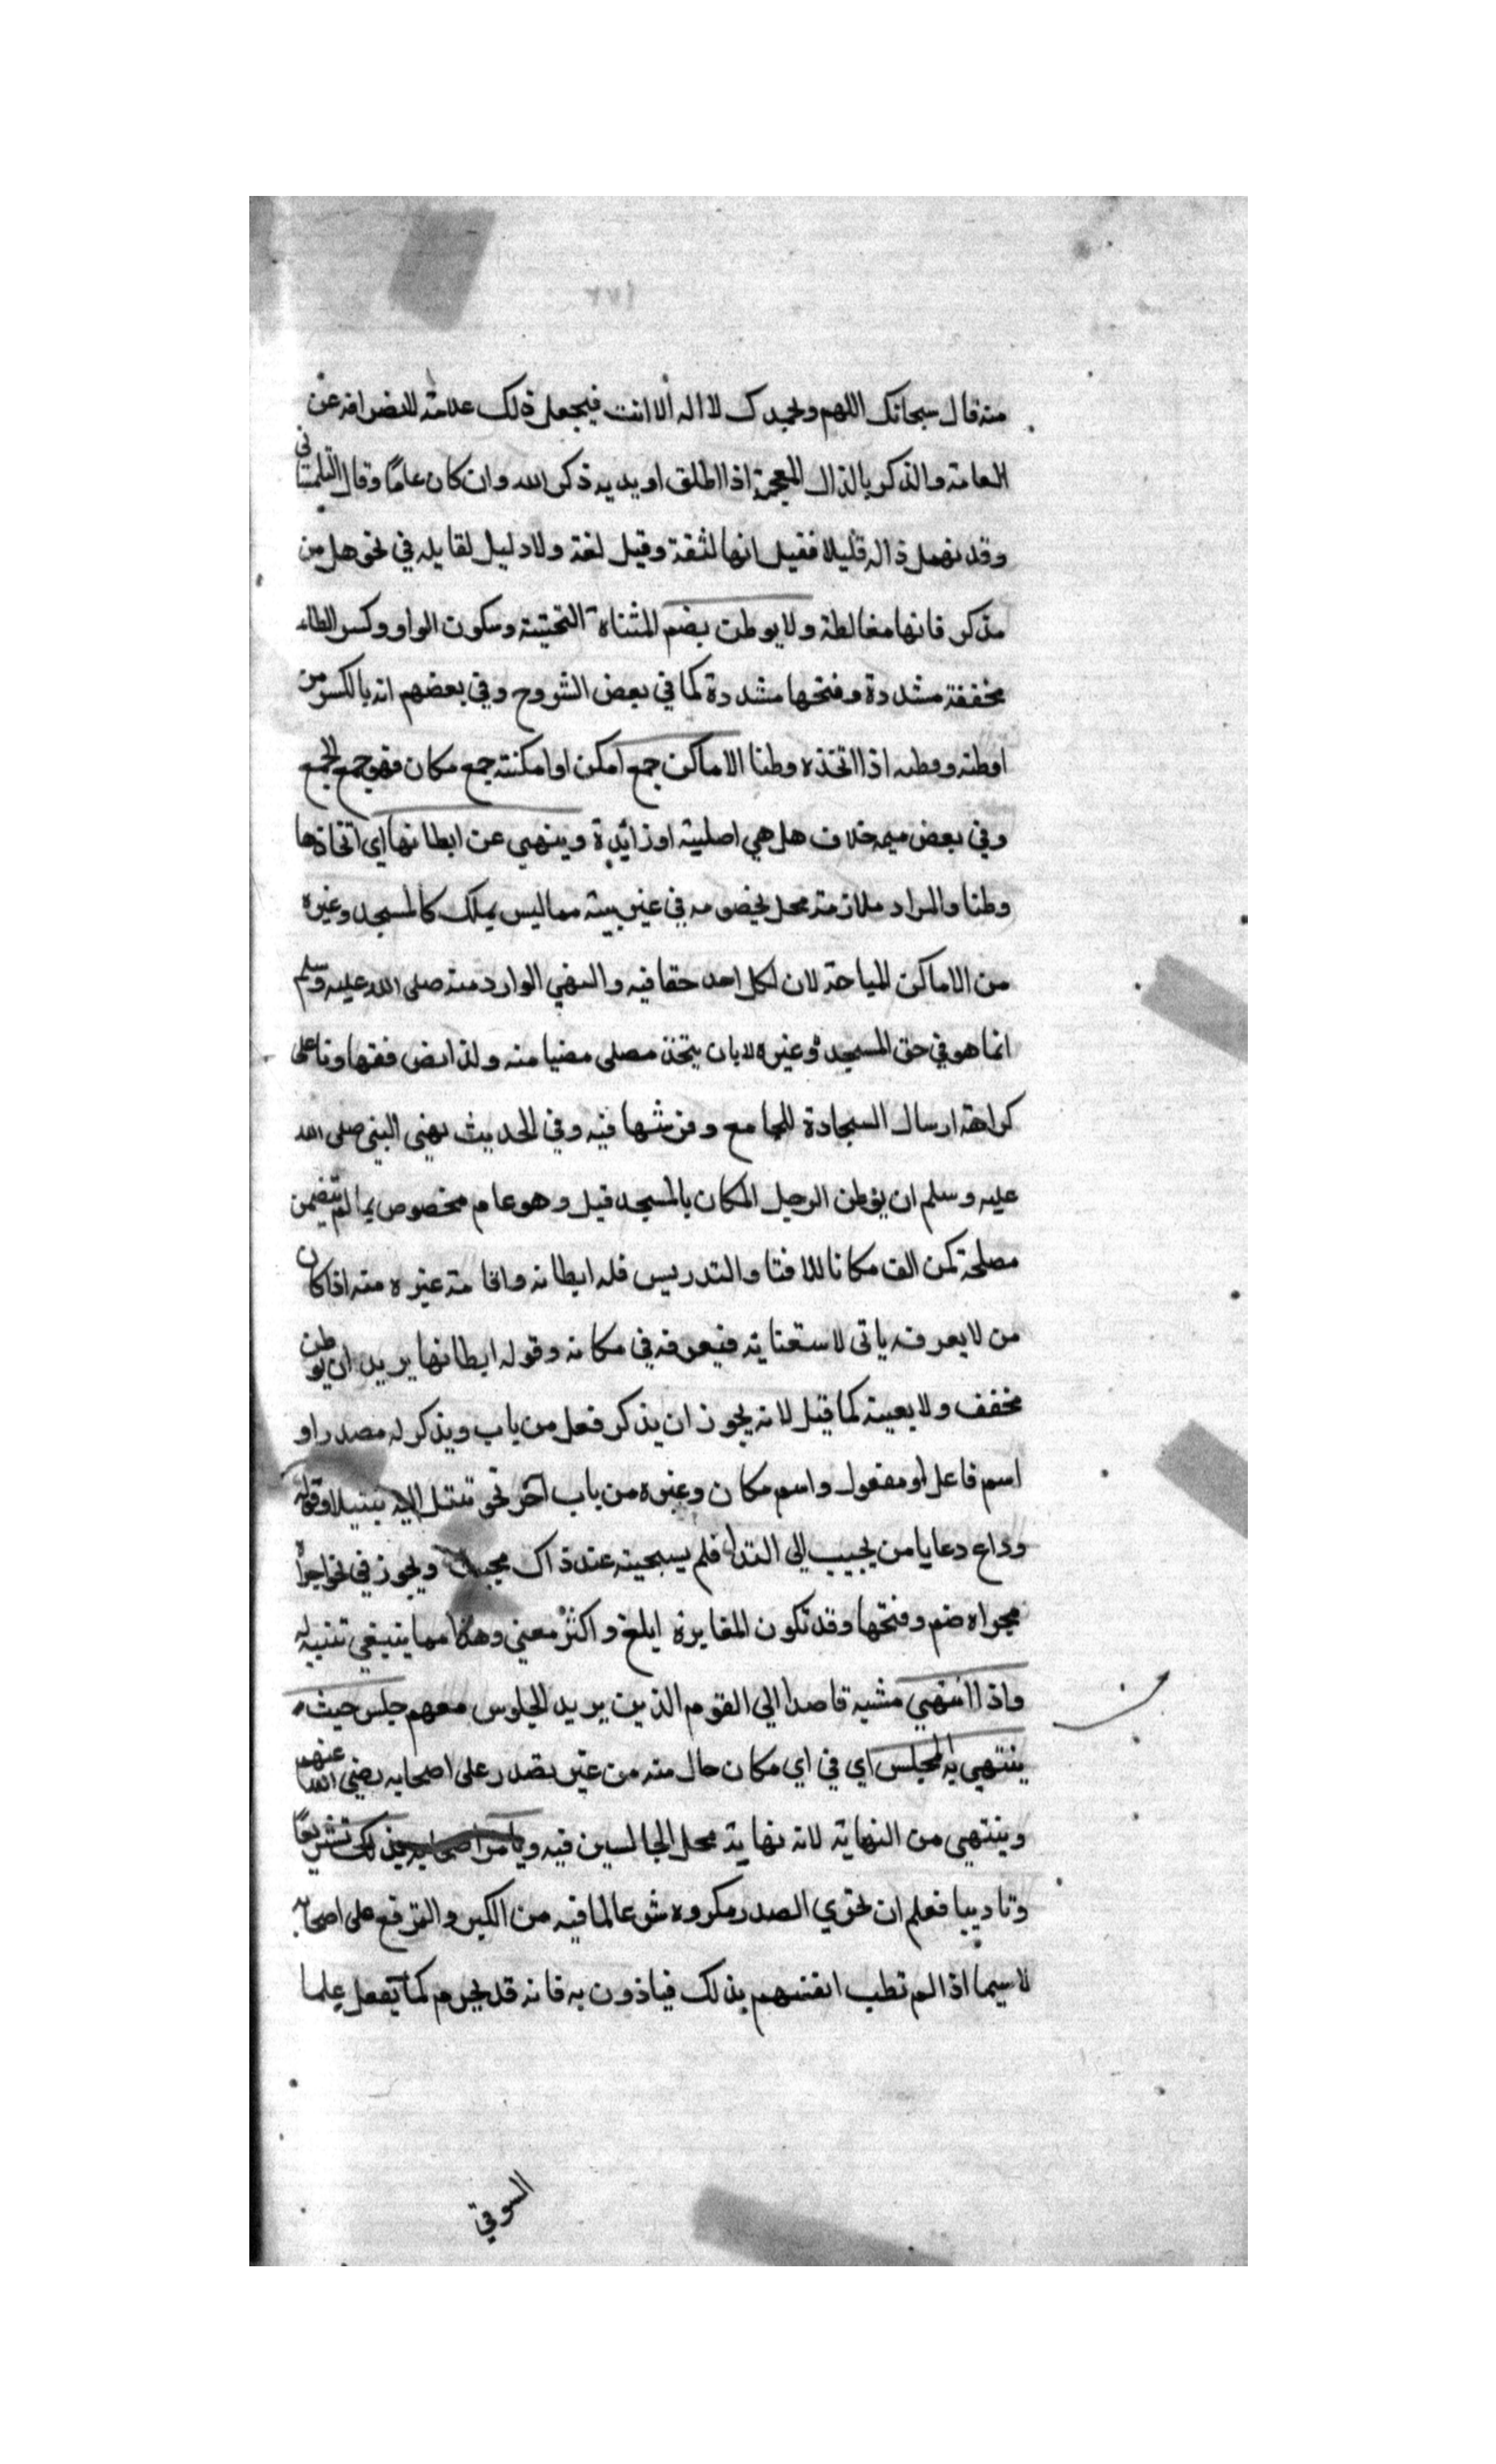 منه قال سبحانك اللهم وبحمدك لا اله الا انت فيجعل ذلك علامة للانصرافه عن
العامة والذكر بالذال المعجمة اذا اطلق اريد به ذكر الله وان كان عاما وقال التلمساني
وقد تهمل ذاله قليلا فقيل انها لثغة وقيل لغة ولا دليل لقايله في نحو هل من
مذكر فانها مغالطة ولا يوطن بضم المثناة التحتية وسكون الواو وكسر الطاء
مخففة مشددة وفتحها مشددة كما في بعض الشروح وفي بعضهم انه بالكسر من
اوطنه ووطنه اذا اتخذه وطنا الاماكن جمع امكن او امكنة جمع مكان فهو جمع الجمع
وفي بعض ميمه خلاف هل هي اصلية او زائدة وينهي عن ايطانها اي اتخاذها
وطنا والمراد ملازمة محل بخصومه في غير بيته مما ليس يملك كالمسجد وغيره
من الاماكن المباحة لان لكل احد حقا فيه والنهي الوارد منه صلى الله عليه وسلم
انما هو في حق المسجد وغيره لا بان يتخذ مصلى مضيا منه ولذا نص فقهاونا على
كراهة ارسال السجادة للجامع وفرشها فيه وفي الحديث نهى النبي صلى الله
عليه وسلم ان يوطن الرجل المكان بالمسجد قيل وهو عام مخصوص بما لم يتضمن
مصلحة كمن الف مكانا للافتا والتدريس فله ايطانه واقامة غيره منه اذا كان
من لا يعرفه ياتي لاستفتايه فيعرفه في مكانه وقوله ايطانها يريد ان يوطن
مخفف ولا يعينه كما قيل لانه يجوز ان يذكر فعل من باب ويذكر له مصدر او
اسم فاعل او مفعول واسم مكان وغيره من باب آخر نحو تبتل اليه تبتيلا وقوله
وداع دعا يا من يجيب الى الندا فلم يستجبه عند ذاك مجيب ويجوز في نحو اجراه
مجراه ضم وفتحها وقد تكون المغايرة ابلغ واكثر معني وهذا مما ينبغي تنبيه له
واذا انتهي مشيه قاصدا الي القوم الذين يريد الجلوس معهم جلس حيث
ينتهي به المجلس اي في اي مكان حال منه من غير تصدر على اصحابه رضي الله عنهم
وينتهي من النهاية لانه نهاية محل الجالسين فيه ويامر اصحابه بذلك تشريعا
وتاديبا فعلم ان تحري الصدر مكروه شرعا لما فيه من الكبر والترفع على اصحابه
لا سيما اذا لم تطب انفسهم بذلك فياذون به فانه قد يحرم كما يفعل علما
السوقي